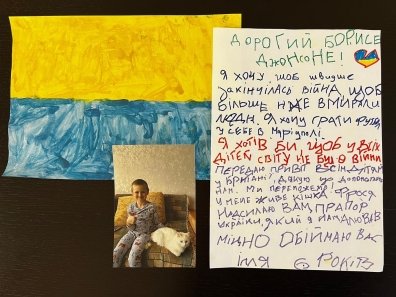 ДОРОГИЙ БОРИСЕ
ДЖОНСОНЕ!
Я ХОЧУ, ЩОБ ШВИДШЕ
ЗАКІНЧИЛАСЬ ВІЙНА, ЩОБ
БІЛЬШЕ НЕ ВМИРАЛИ
ЛЮДИ. Я ХОЧУ ГРАТИ
У СЕБЕ В МАРІУПОЛІ
Я ХОТІВ БИ, ЩОБ У ВСІХ
ДІТЕЙ СВІТУ НЕ БУЛО ВІЙНИ
ПЕРЕДАЮ ПРИВІТ ВСІМ ДІТЯМ
У БРИТАНІЇ! ДЯКУЮ ЩО ДОПОМАГАЄТЕ
НАМ. МИ ПЕРЕМОЖЕМО!
У МЕНЕ ЖИВЕ КІШКА ФРОСЯ
НАДСИЛАЮ ВАМ ПРАПОР
УКРАЇНИ, ЯКИЙ Я НАМАЛЮВАВ
МІЦНО ОБІЙМАЮ ВАС
ІЛЛЯ 6 РОКІВ